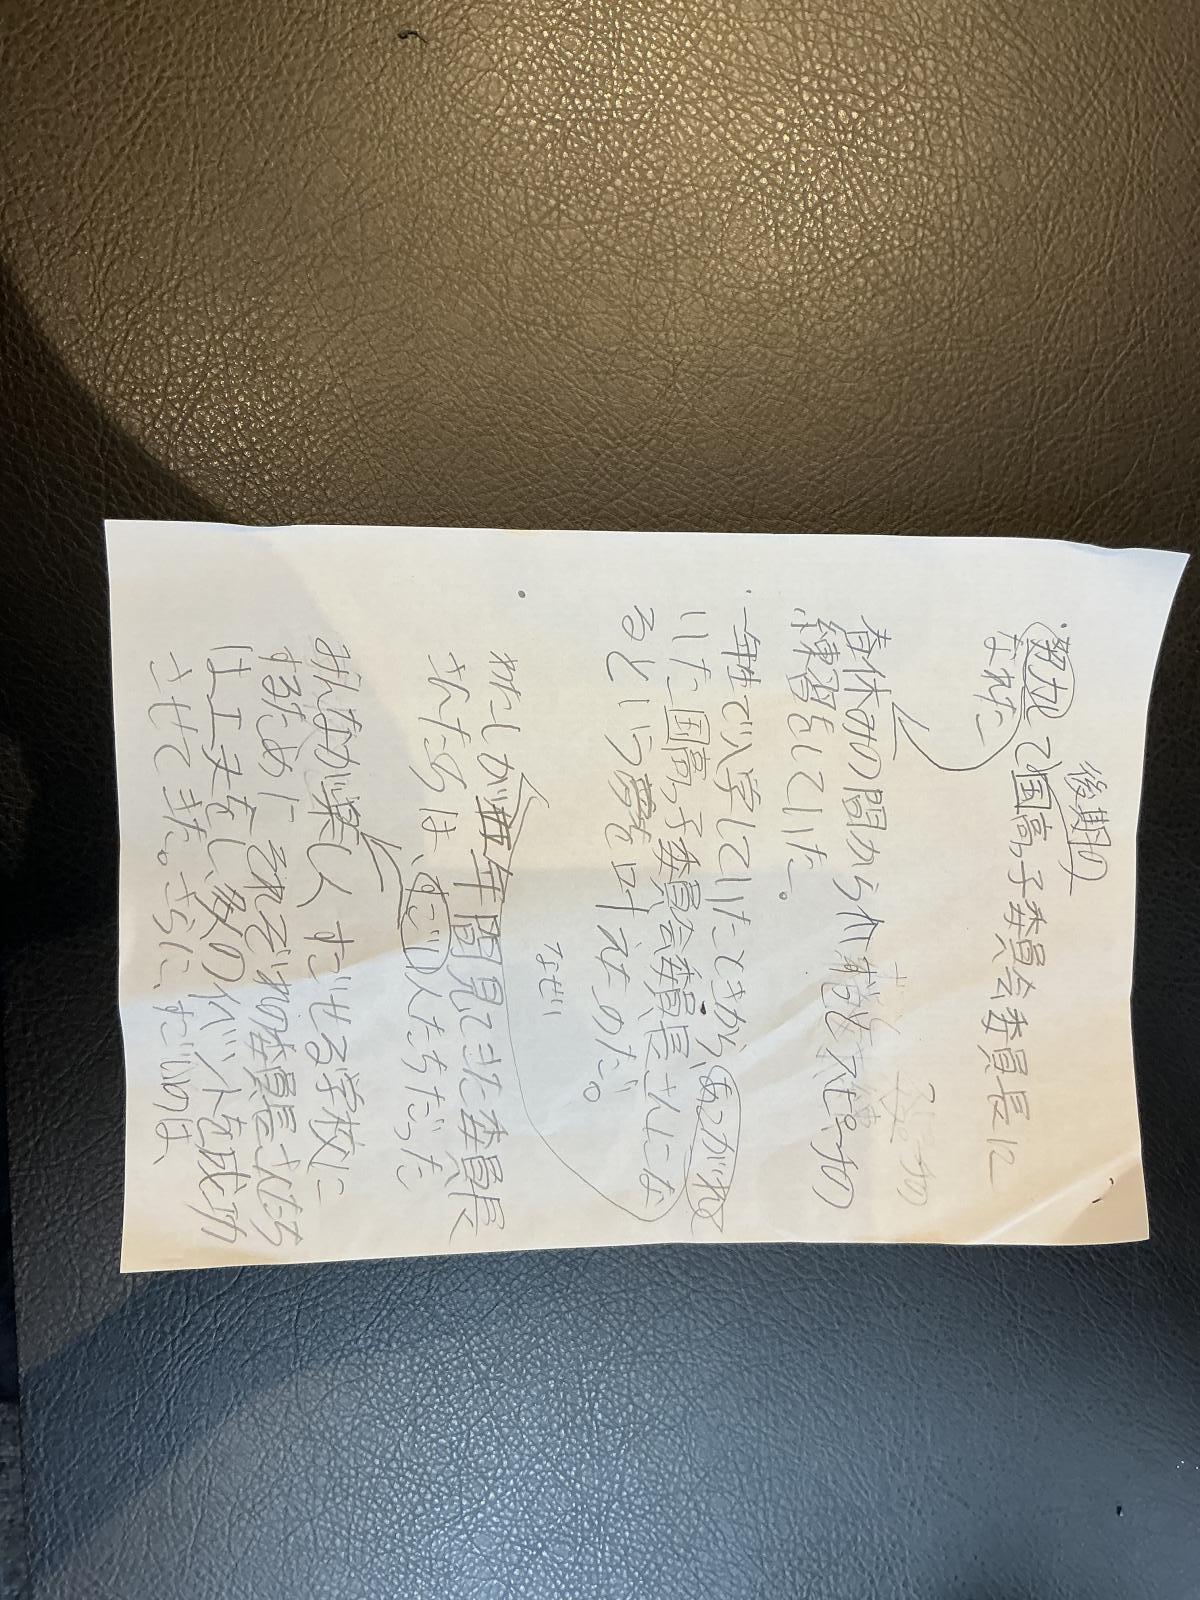 後期の
・努力して国高子委員会委員長に
なれた
春休みの間から
練習をしていた。
・一年生で入学していたときから、あこがれ
いた国高子委員会委員長さんにな
るという夢を叶えたのだ。
なぜ、
わたしが四年間見てきた委員長
さんたちは、すごい人たちだった
みんなが楽しくすごせる学校に
するために、それぞれの委員長さんたち
は工夫をし、多くのイベントを成功
させてきた。さらに、すごいのは、